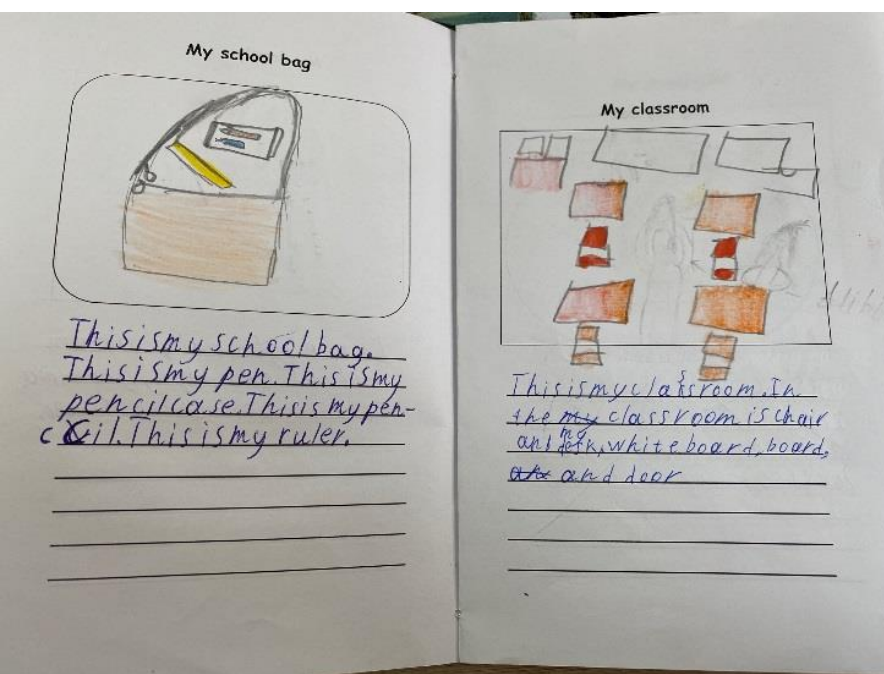 My school bag
This is my school bag.
This is my pen. This is my
pencilcase. This is my pen-
cil. This is my ruler.
My classroom
This is my classroom. In
the my classroom is chair
and desk, whiteboard, board,
and door